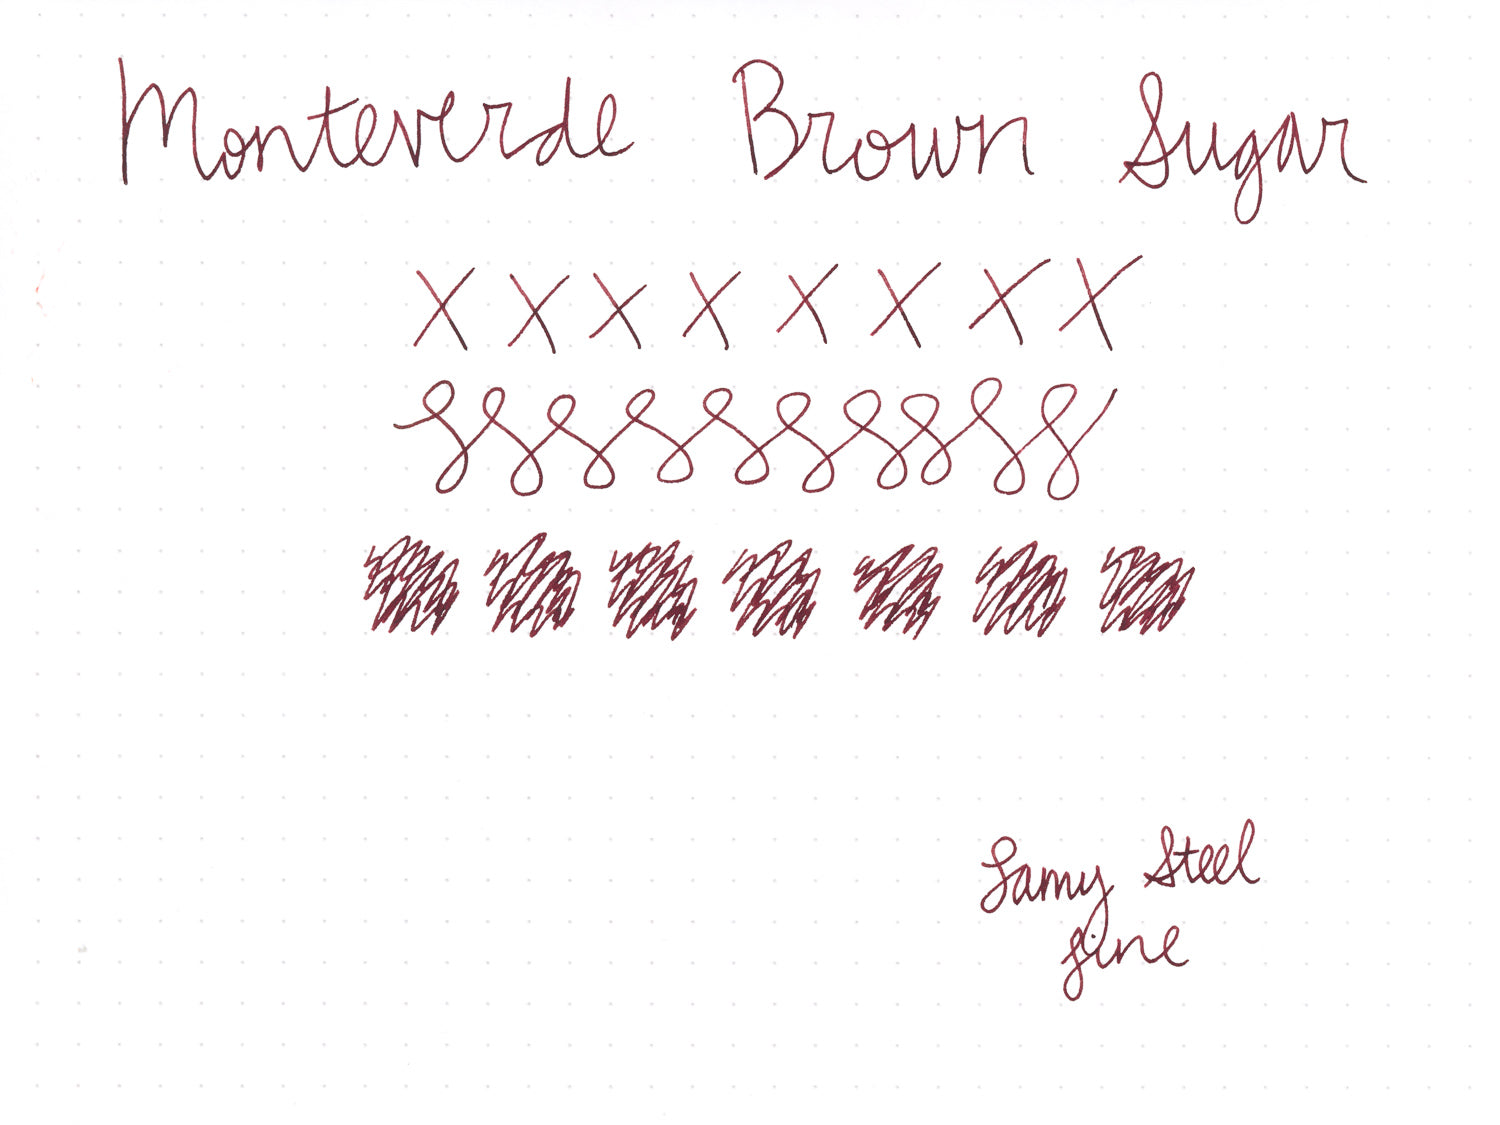 Monteverde Brown Sugar
X X X X X X X X
Lamy Steel
fine